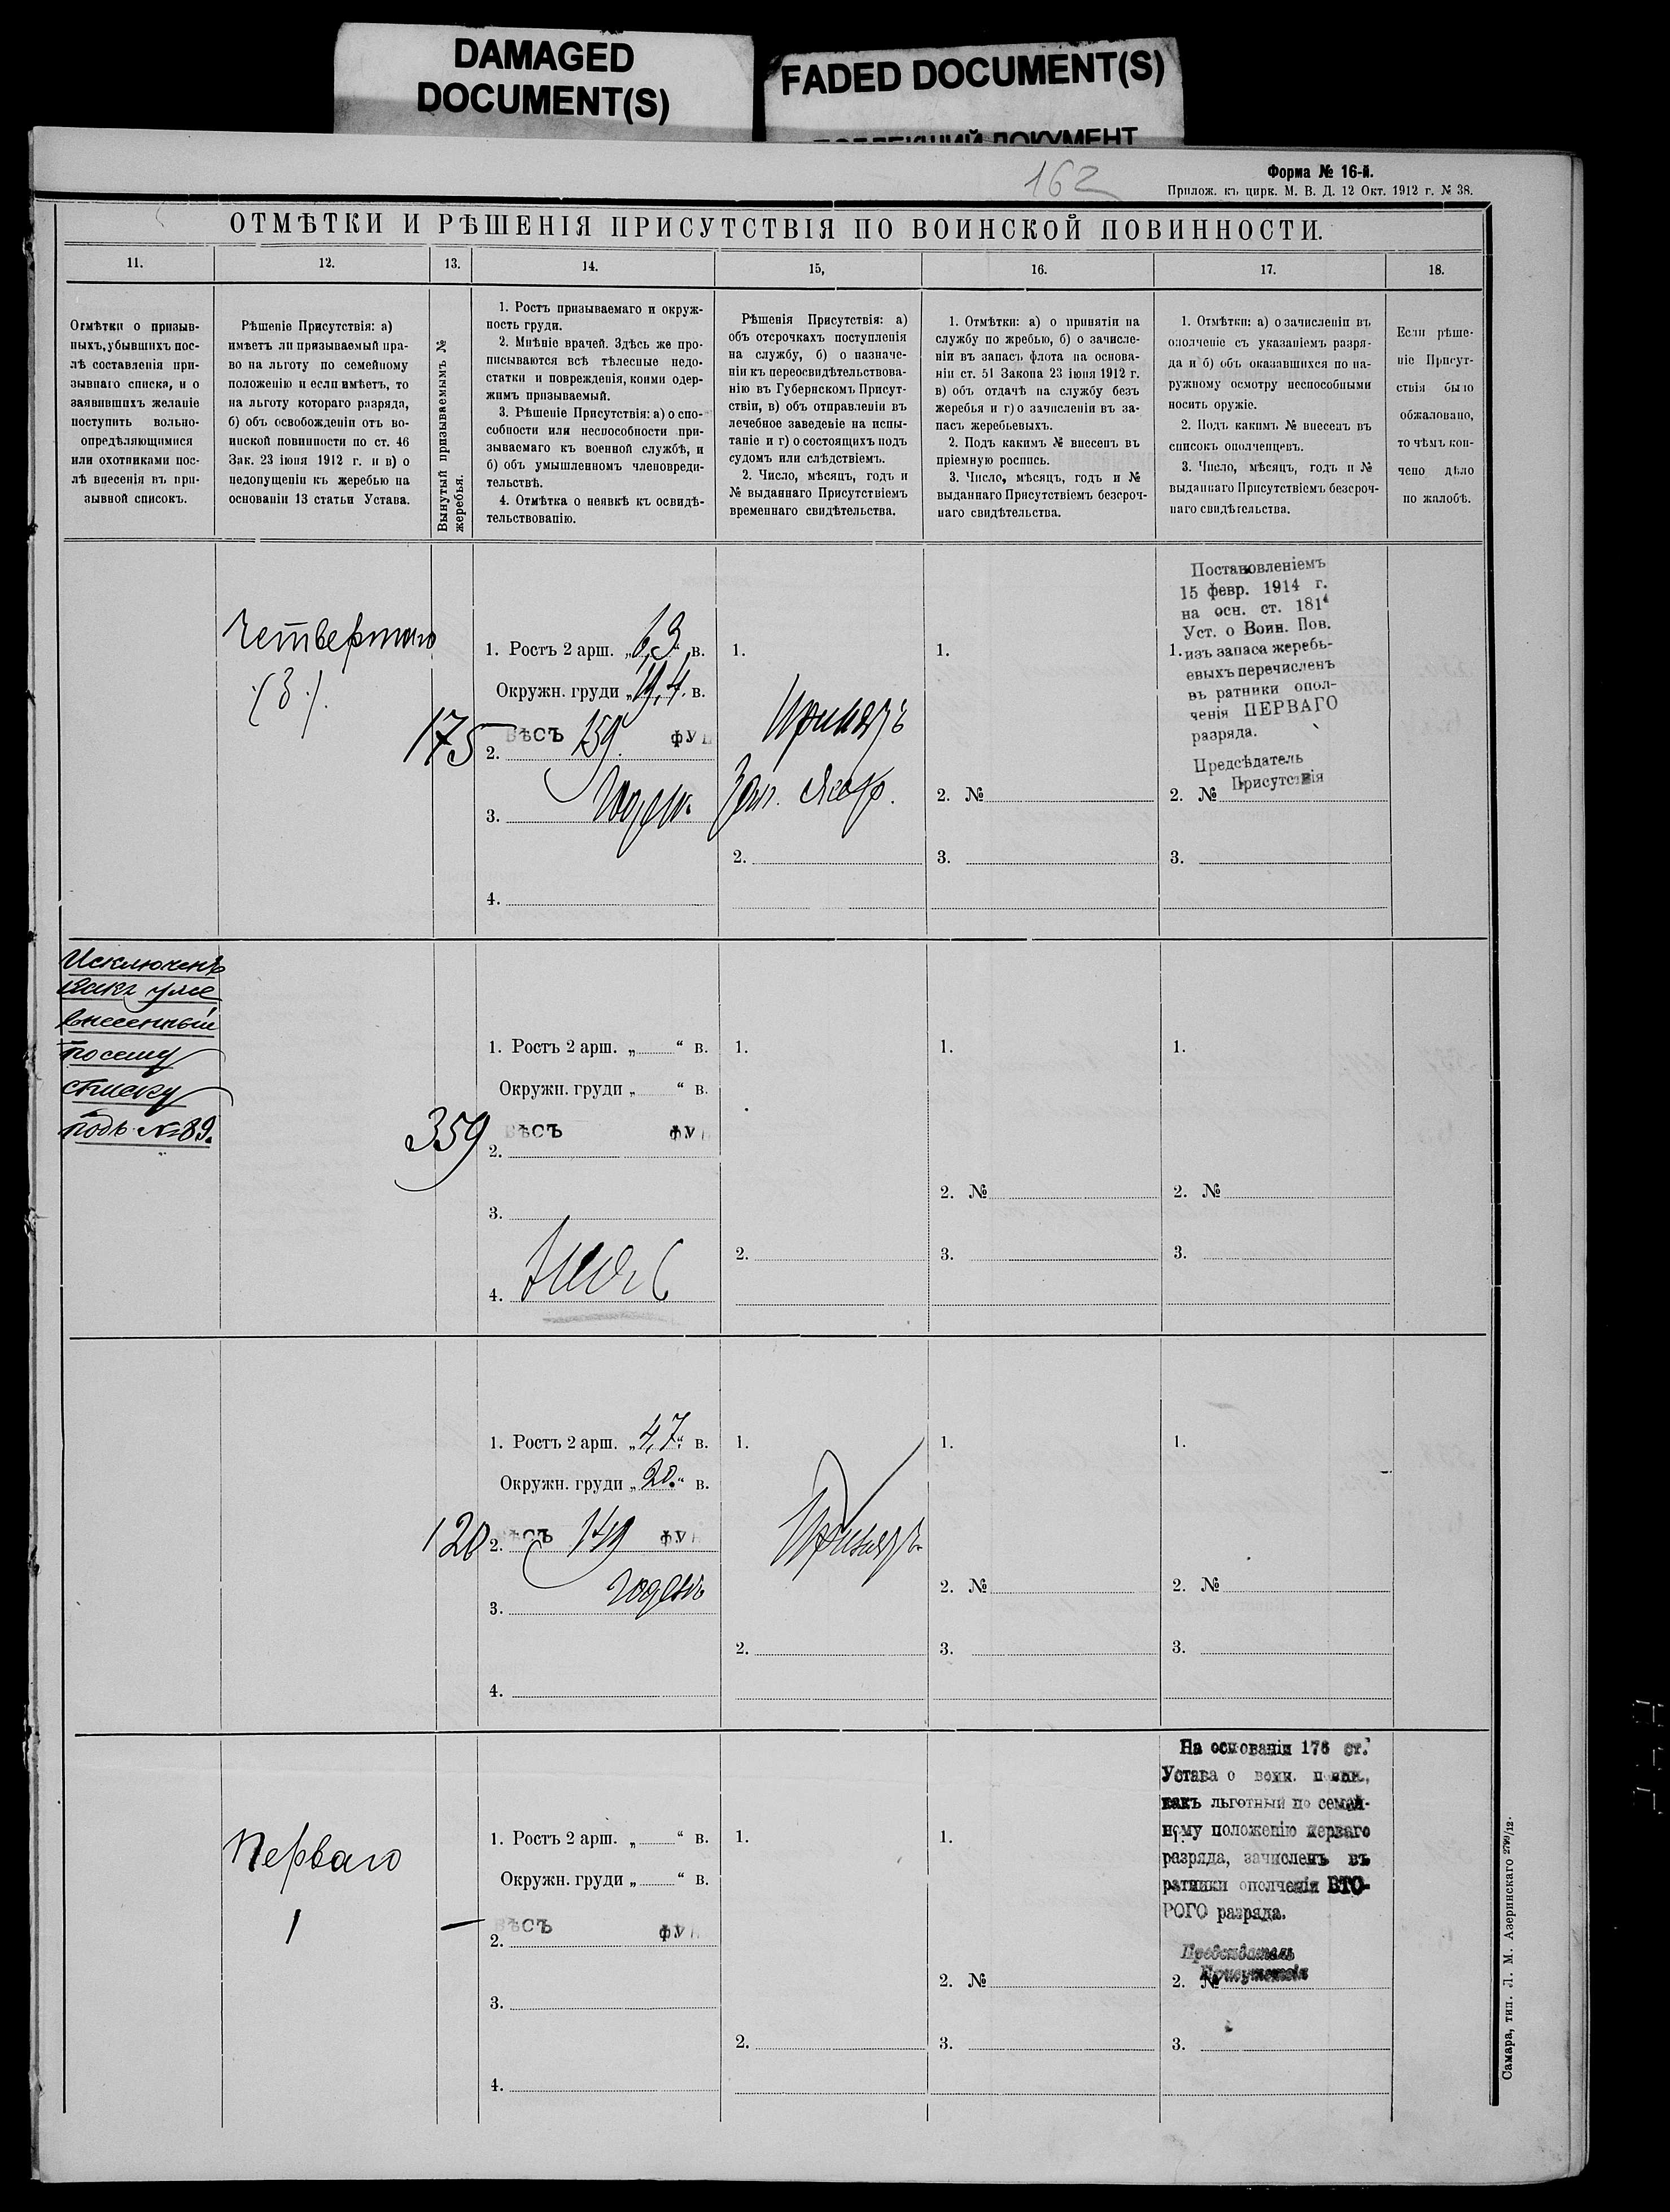 DAMAGED
DOCUMENT(S)
FADED DOCUMENT(S)
ДОКУМЕНТ
162
Форма № 16-й.
Прилож. къ цирк. М. В. Д. 12 Окт. 1912 г. № 38.
ОТМѢТКИ И РѢШЕНІЯ ПРИСУТСТВІЯ ПО ВОИНСКОЙ ПОВИННОСТИ.
11.
12.
13.
14.
15,
16.
17.
18.
Отмѣтки о призыв-
ныхъ, убывшихъ пос-
лѣ составленія при-
зывнаго списка, и о
заявившихъ желаніе
поступить вольно-
опредѣляющимися
или охотниками пос-
лѣ внесенія въ при-
зывной списокъ.
Рѣшеніе Присутствія: а)
имѣетъ ли призываемый пра-
во на льготу по семейному
положенію и если имѣетъ, то
на льготу котораго разряда,
б) объ освобожденіи отъ во-
инской повинности по ст. 46
Зак. 23 іюня 1912 г. и в) о
недопущеніи къ жеребью на
основаніи 13 статьи Устава.
Вынутый призываемымъ №
жеребья.
1. Ростъ призываемаго и окруж-
ность груди.
2. Мнѣніе врачей. Здѣсь же про-
писываются всѣ тѣлесные недо-
статки и поврежденія, коими одер-
жимъ призываемый.
3. Рѣшеніе Присутствія: а) о спо-
собности или неспособности при-
зываемаго къ военной службѣ, и
б) объ умышленномъ членовреди-
тельствѣ.
4. Отмѣтка о неявкѣ къ освидѣ-
тельствованію.
Рѣшенія Присутствія: а)
объ отсрочкахъ поступленія
на службу, б) о назначе-
ніи къ переосвидѣтельствова-
нію въ Губернскомъ Присут-
ствіи, в) объ отправленіи въ
лечебное заведеніе на испы-
таніе и г) о состоящихъ подъ
судомъ или слѣдствіемъ.
2. Число, мѣсяцъ, годъ и
№ выданнаго Присутствіемъ
временнаго свидѣтельства.
1. Отмѣтки: а) о принятіи на
службу по жребью, б) о зачисле-
ніи въ запасъ флота на основа-
ніи ст. 51 Закона 23 іюня 1912 г.
в) объ отдачѣ на службу безъ
жеребья и г) о зачисленіи въ за-
пасъ жеребьевыхъ.
2. Подъ какимъ № внесенъ въ
пріемную роспись.
3. Число, мѣсяцъ, годъ и №
выданнаго Присутствіемъ безсроч-
наго свидѣтельства.
1. Отмѣтки: а) о зачисленіи въ
ополченіе съ указаніемъ разря-
да и б) объ оказавшихся по на-
ружному осмотру неспособными
носить оружіе.
2. Подъ какимъ № внесенъ въ
списокъ ополченцевъ.
3. Число, мѣсяцъ, годъ и №
выданнаго Присутствіемъ безсроч-
наго свидѣтельства.
Если рѣше-
ніе Присут-
ствія было
обжаловано,
то чѣмъ кон-
чено дѣло
по жалобѣ.
Четвертаго
(3).
175
1. Ростъ 2 арш. „6,3“ в.
Окружн. груди „19,4“ в.
2. ВѢСЪ 159 ФУ
3. Годенъ
4.
1.
Принятъ
Зап.
2.
1.
2. №
3.
Постановленіемъ
15 февр. 1914 г.
на осн. ст. 181
Уст. о Воин. Пов.
1. изъ запаса жеребь-
евыхъ перечисленъ
въ ратники опол-
ченія ПЕРВАГО
разряда.
Предсѣдатель
Присутствія
2. №
3.
Исключенъ
какъ уже
внесенный
по сему
списку
подъ № 89.
359
1. Ростъ 2 арш. „ “ в.
Окружн. груди „ “ в.
2. ВѢСЪ ФУ
3.
4.
1.
2.
1.
2. №
3.
1.
2. №
3.
120
1. Ростъ 2 арш. „4,7“ в.
Окружн. груди „20“ в.
2. ВѢСЪ 149 ФУ
3. Годенъ
4.
1.
Принятъ
2.
1.
2. №
3.
1.
2. №
3.
Перваго
1
—
1. Ростъ 2 арш. „ “ в.
Окружн. груди „ “ в.
2. ВѢСЪ ФУ
3.
4.
1.
2.
1.
2. №
3.
На основаніи 176 ст.
Устава о воин. повин.,
какъ льготный по семей-
ному положенію перваго
разряда, зачисленъ въ
ратники ополченія ВТО-
РОГО разряда.
Предсѣдатель
Присутствія
2. №
3.
Самара, тип. Л. М. Азеринскаго 2799/12.